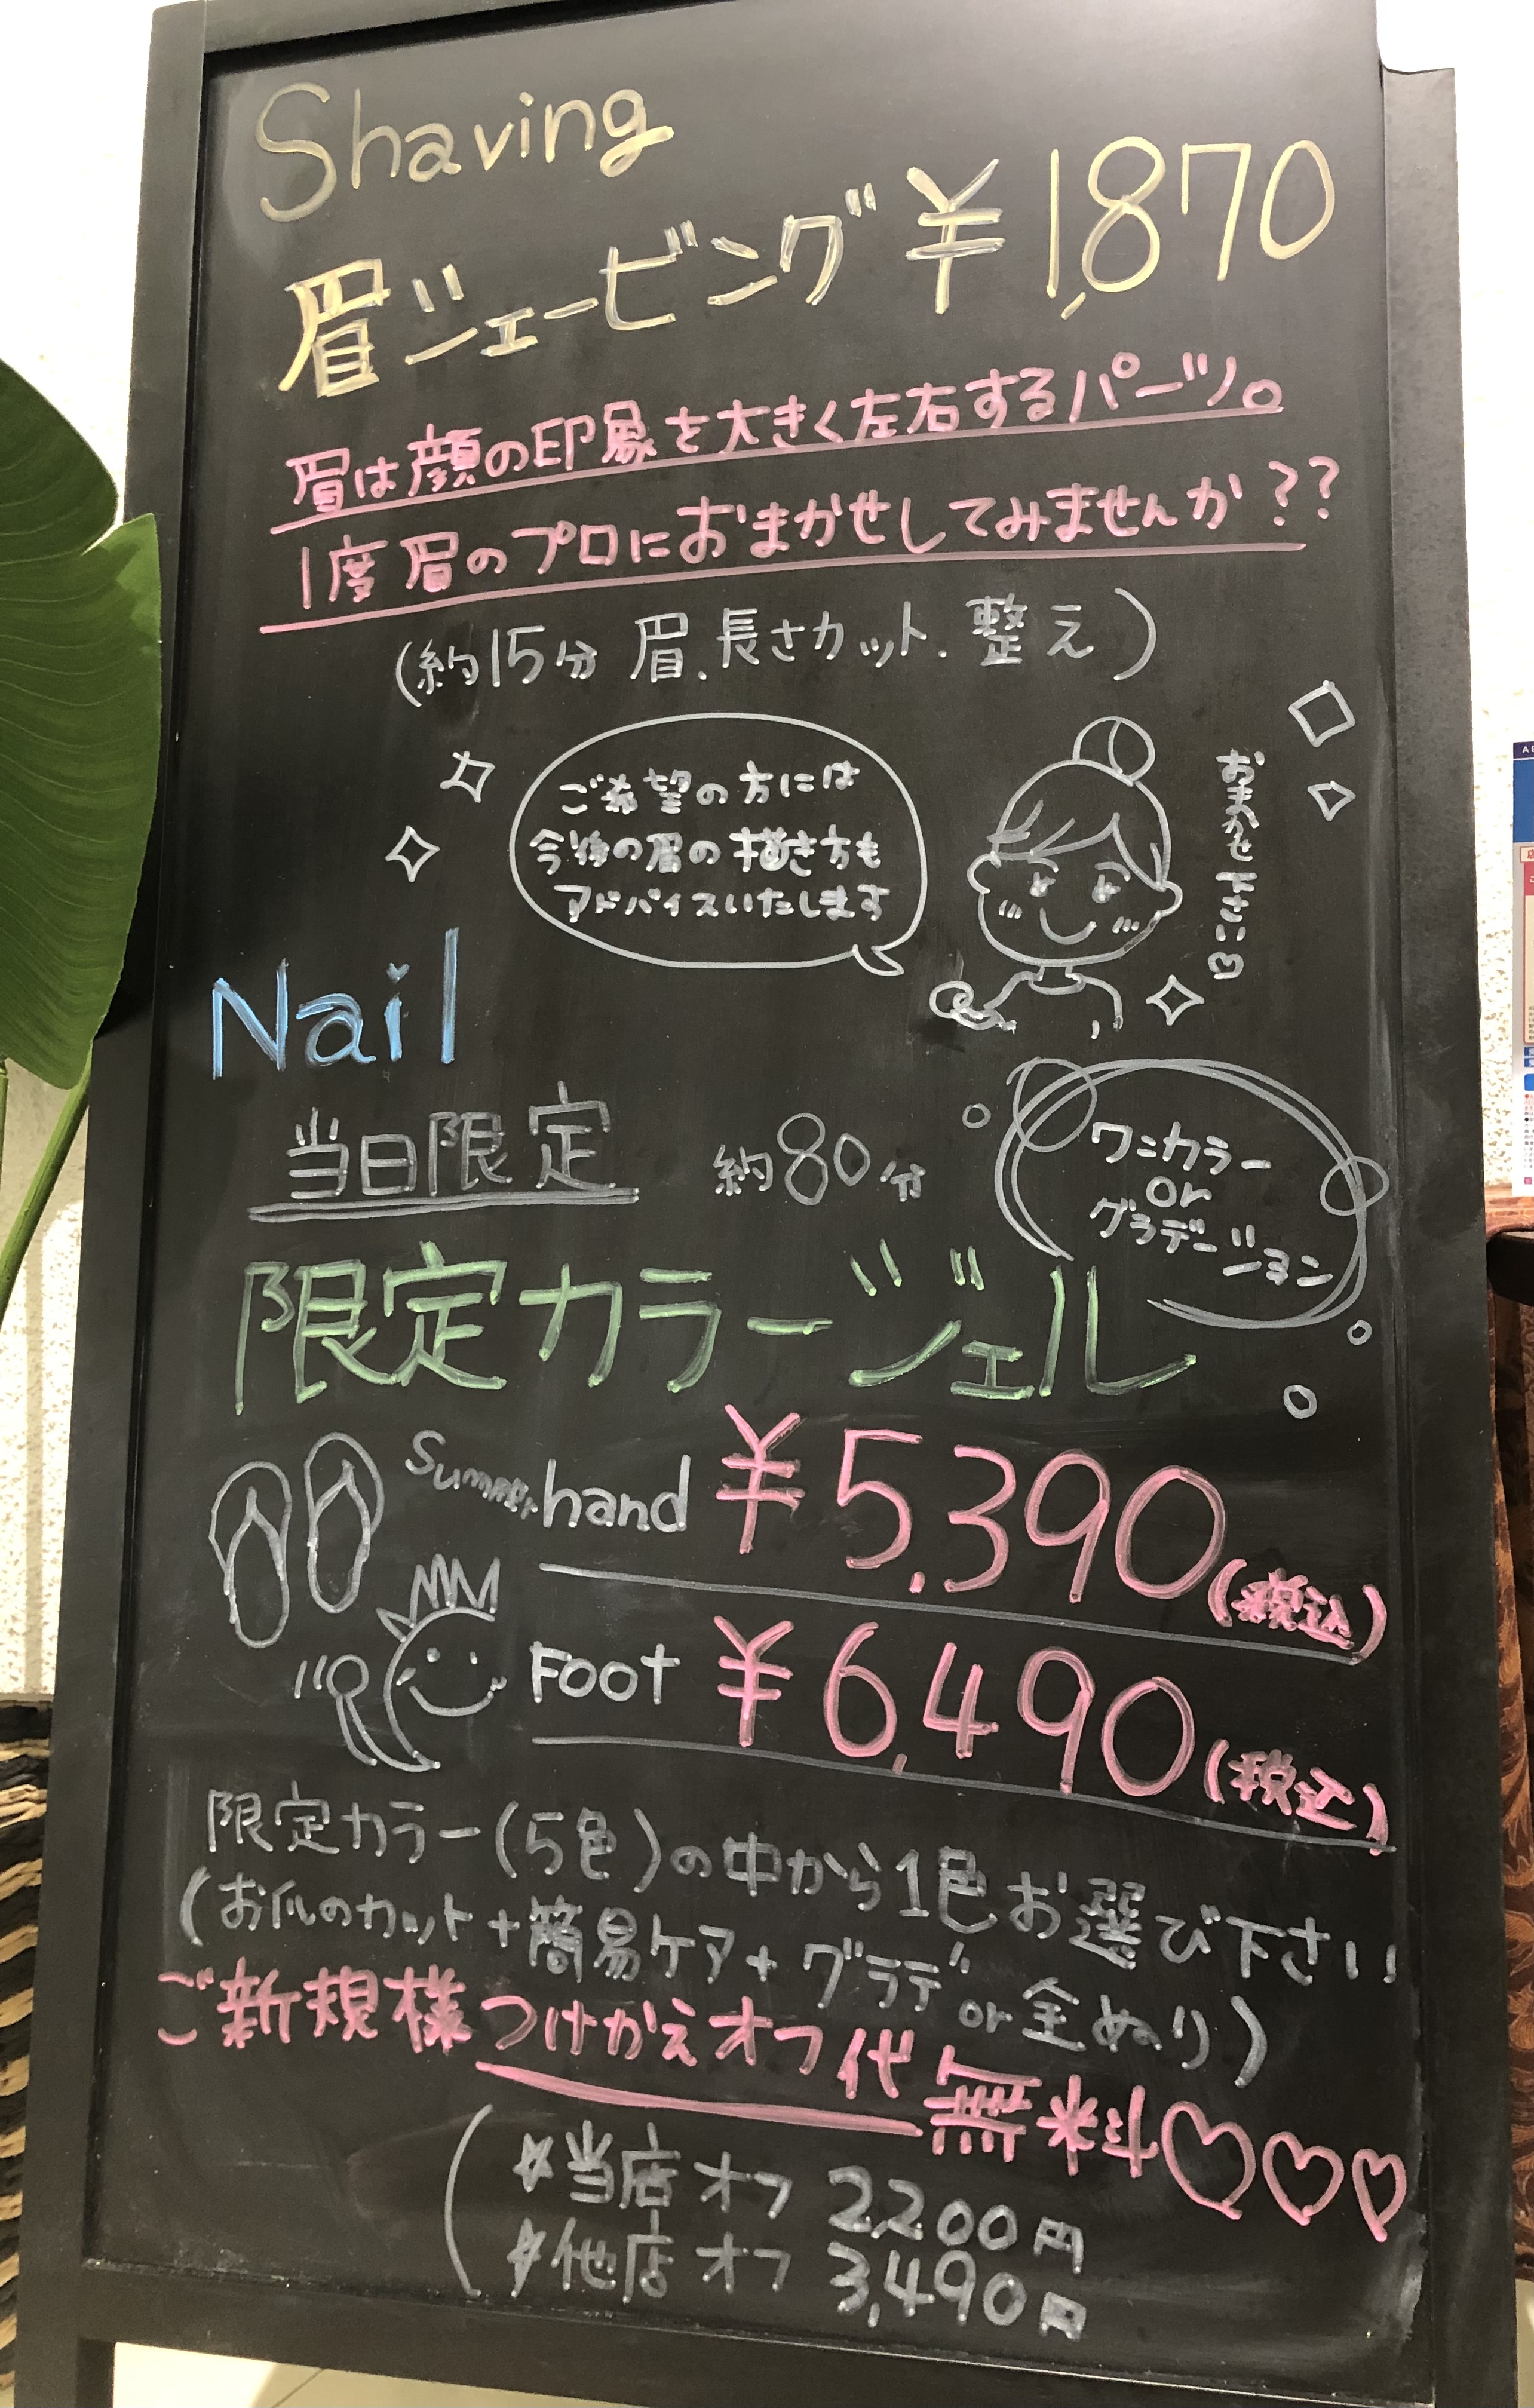 Shaving
眉シェービング ¥1,870
眉は顔の印象を大きく左右するパーツ。
1度眉のプロにおまかせしてみませんか??
(約15分 眉.長さカット.整え)
ご希望の方には
今後の眉の描き方も
アドバイスいたします
おまかせ下さい♡
Nail
当日限定 約80分
ワンカラー
or
グラデーション
限定カラージェル
Summer
hand ¥5,390(税込)
Foot ¥6,490(税込)
限定カラー(5色)の中から1色お選び下さい
(お爪のカット+簡易ケア+グラデor全ぬり)
ご新規様つけかえオフ代無料♡♡♡
(☆当店オフ 2,200円
☆他店オフ 3,490円